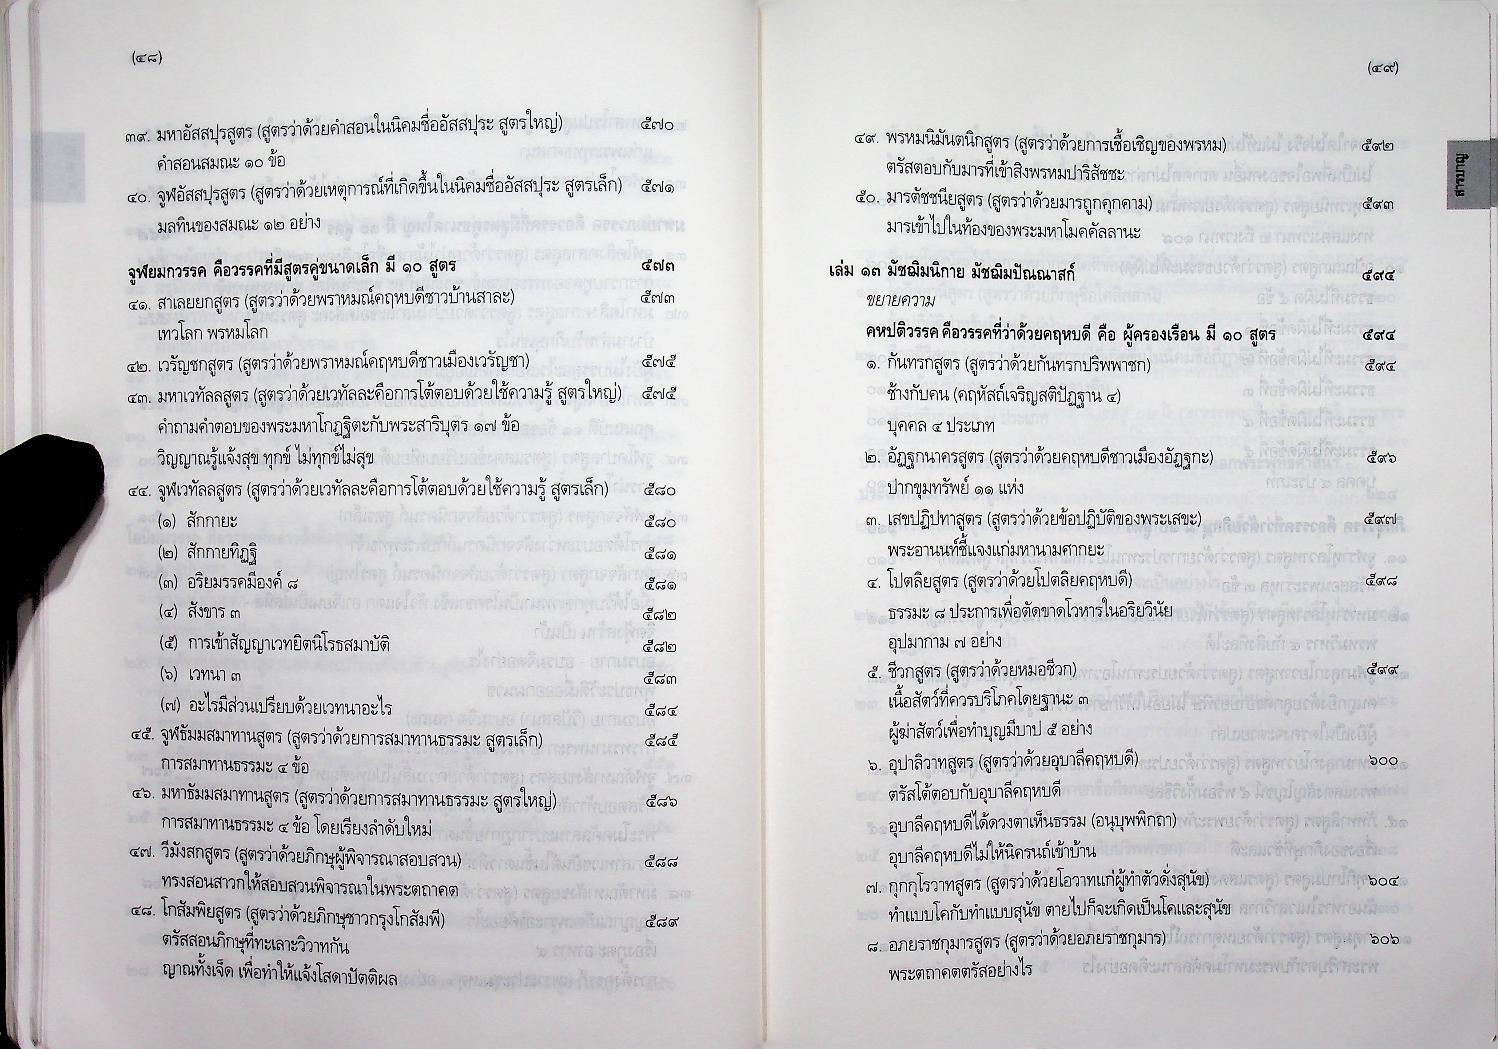 (๔๘)
๓๙. มหาอัสสปุรสูตร (สูตรว่าด้วยคำสอนในนิคมชื่ออัสสปุระ สูตรใหญ่) ๕๗๐
คำสอนสมณะ ๑๐ ข้อ
๔๐. จูฬอัสสปุรสูตร (สูตรว่าด้วยเหตุการณ์ที่เกิดขึ้นในนิคมชื่ออัสสปุระ สูตรเล็ก) ๕๗๑
มลทินของสมณะ ๑๒ อย่าง
จูฬยมกวรรค คือวรรคที่มีสูตรคู่ขนาดเล็ก มี ๑๐ สูตร ๕๗๓
๔๑. สาเลยยกสูตร (สูตรว่าด้วยพราหมณ์คฤหบดีชาวบ้านสาละ) ๕๗๓
เทวโลก พรหมโลก
๔๒. เวรัญชกสูตร (สูตรว่าด้วยพราหมณ์คฤหบดีชาวเมืองเวรัญชา) ๕๗๕
๔๓. มหาเวทัลลสูตร (สูตรว่าด้วยเวทัลละคือการโต้ตอบด้วยใช้ความรู้ สูตรใหญ่) ๕๗๕
คำถามคำตอบของพระมหาโกฏฐิตะกับพระสาริบุตร ๑๗ ข้อ
วิญญาณรู้แจ้งสุข ทุกข์ ไม่ทุกข์ไม่สุข
๔๔. จูฬเวทัลลสูตร (สูตรว่าด้วยเวทัลละคือการโต้ตอบด้วยใช้ความรู้ สูตรเล็ก) ๕๘๐
(๑) สักกายะ ๕๘๐
(๒) สักกายทิฏฐิ ๕๘๑
(๓) อริยมรรคมีองค์ ๘ ๕๘๑
(๔) สังขาร ๓ ๕๘๒
(๕) การเข้าสัญญาเวทยิตนิโรธสมาบัติ ๕๘๒
(๖) เวทนา ๓ ๕๘๓
(๗) อะไรมีส่วนเปรียบด้วยเวทนาอะไร ๕๘๔
๔๕. จูฬธัมมสมาทานสูตร (สูตรว่าด้วยการสมาทานธรรมะ สูตรเล็ก) ๕๘๕
การสมาทานธรรมะ ๔ ข้อ
๔๖. มหาธัมมสมาทานสูตร (สูตรว่าด้วยการสมาทานธรรมะ สูตรใหญ่) ๕๘๖
การสมาทานธรรมะ ๔ ข้อ โดยเรียงลำดับใหม่
๔๗. วีมังสกสูตร (สูตรว่าด้วยภิกษุผู้พิจารณาสอบสวน) ๕๘๘
ทรงสอนสาวกให้สอบสวนพิจารณาในพระตถาคต
๔๘. โกสัมพิยสูตร (สูตรว่าด้วยภิกษุชาวกรุงโกสัมพี) ๕๘๙
ตรัสสอนภิกษุที่ทะเลาะวิวาทกัน
ญาณทั้งเจ็ด เพื่อทำให้แจ้งโสดาปัตติผล
(๔๙)
๔๙. พรหมนิมันตนิกสูตร (สูตรว่าด้วยการเชื้อเชิญของพรหม) ๕๙๒
ตรัสตอบกับมารที่เข้าสิงพรหมปาริสัชชะ
๕๐. มารตัชชนียสูตร (สูตรว่าด้วยมารถูกคุกคาม) ๕๙๓
มารเข้าไปในท้องของพระมหาโมคคัลลานะ
เล่ม ๑๓ มัชฌิมนิกาย มัชฌิมปัณณาสก์ ๕๙๔
ขยายความ
คหปติวรรค คือวรรคที่ว่าด้วยคฤหบดี คือ ผู้ครองเรือน มี ๑๐ สูตร ๕๙๔
๑. กันทรกสูตร (สูตรว่าด้วยกันทรกปริพพาชก) ๕๙๔
ช้างกับคน (คฤหัสถ์เจริญสติปัฏฐาน ๔)
บุคคล ๔ ประเภท
๒. อัฏฐกนาครสูตร (สูตรว่าด้วยคฤหบดีชาวเมืองอัฏฐกะ) ๕๙๖
ปากขุมทรัพย์ ๑๑ แห่ง
๓. เสขปฏิปทาสูตร (สูตรว่าด้วยข้อปฏิบัติของพระเสขะ) ๕๙๗
พระอานนท์ชี้แจงแก่มหานามศากยะ
๔. โปตลิยสูตร (สูตรว่าด้วยโปตลิยคฤหบดี) ๕๙๘
ธรรมะ ๘ ประการเพื่อตัดขาดโวหารในอริยวินัย
อุปมากาม ๗ อย่าง
๕. ชีวกสูตร (สูตรว่าด้วยหมอชีวก) ๕๙๙
เนื้อสัตว์ที่ควรบริโภคโดยฐานะ ๓
ผู้ฆ่าสัตว์เพื่อทำบุญมีบาป ๕ อย่าง
๖. อุปาลิวาทสูตร (สูตรว่าด้วยอุบาลีคฤหบดี) ๖๐๐
ตรัสโต้ตอบกับอุบาลีคฤหบดี
อุบาลีคฤหบดีได้ดวงตาเห็นธรรม (อนุบุพพิกถา)
อุบาลีคฤหบดีไม่ให้นิครนถ์เข้าบ้าน
๗. กุกกุโรวาทสูตร (สูตรว่าด้วยโอวาทแก่ผู้ทำตัวดั่งสุนัข) ๖๐๔
ทำแบบโคกับทำแบบสุนัข ตายไปก็จะเกิดเป็นโคและสุนัข
๘. อภยราชกุมารสูตร (สูตรว่าด้วยอภยราชกุมาร) ๖๐๖
พระตถาคตตรัสอย่างไร
สารบาญ